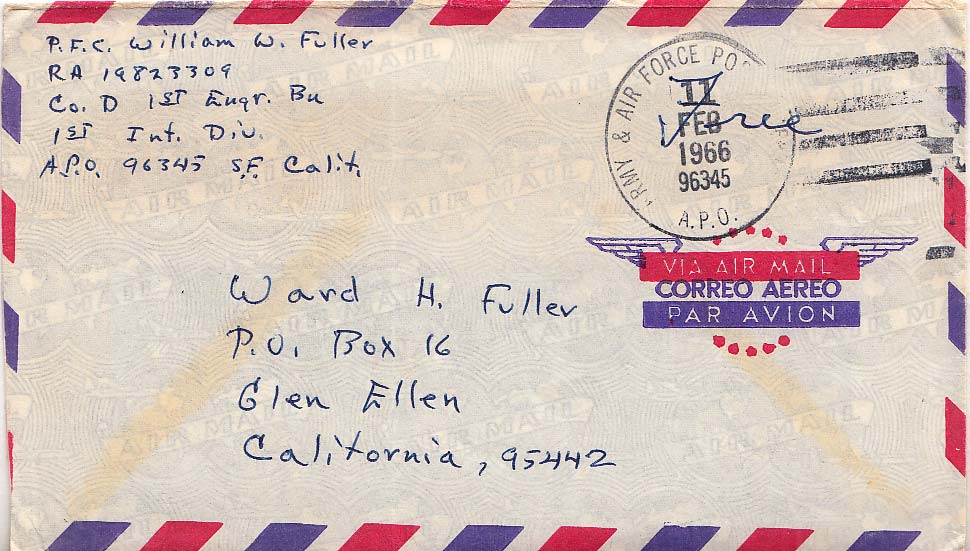 P.F.C. William W. Fuller
RA 19823309
Co. D 1ST Engr. Bn
1ST Inf. Div.
A.P.O. 96345 S.F. Calif.
ARMY & AIR FORCE PO
11
FEB
1966
96345
A.P.O.
Free
VIA AIR MAIL
CORREO AEREO
PAR AVION
Ward H. Fuller
P.O. Box 16
Glen Ellen
California, 95442